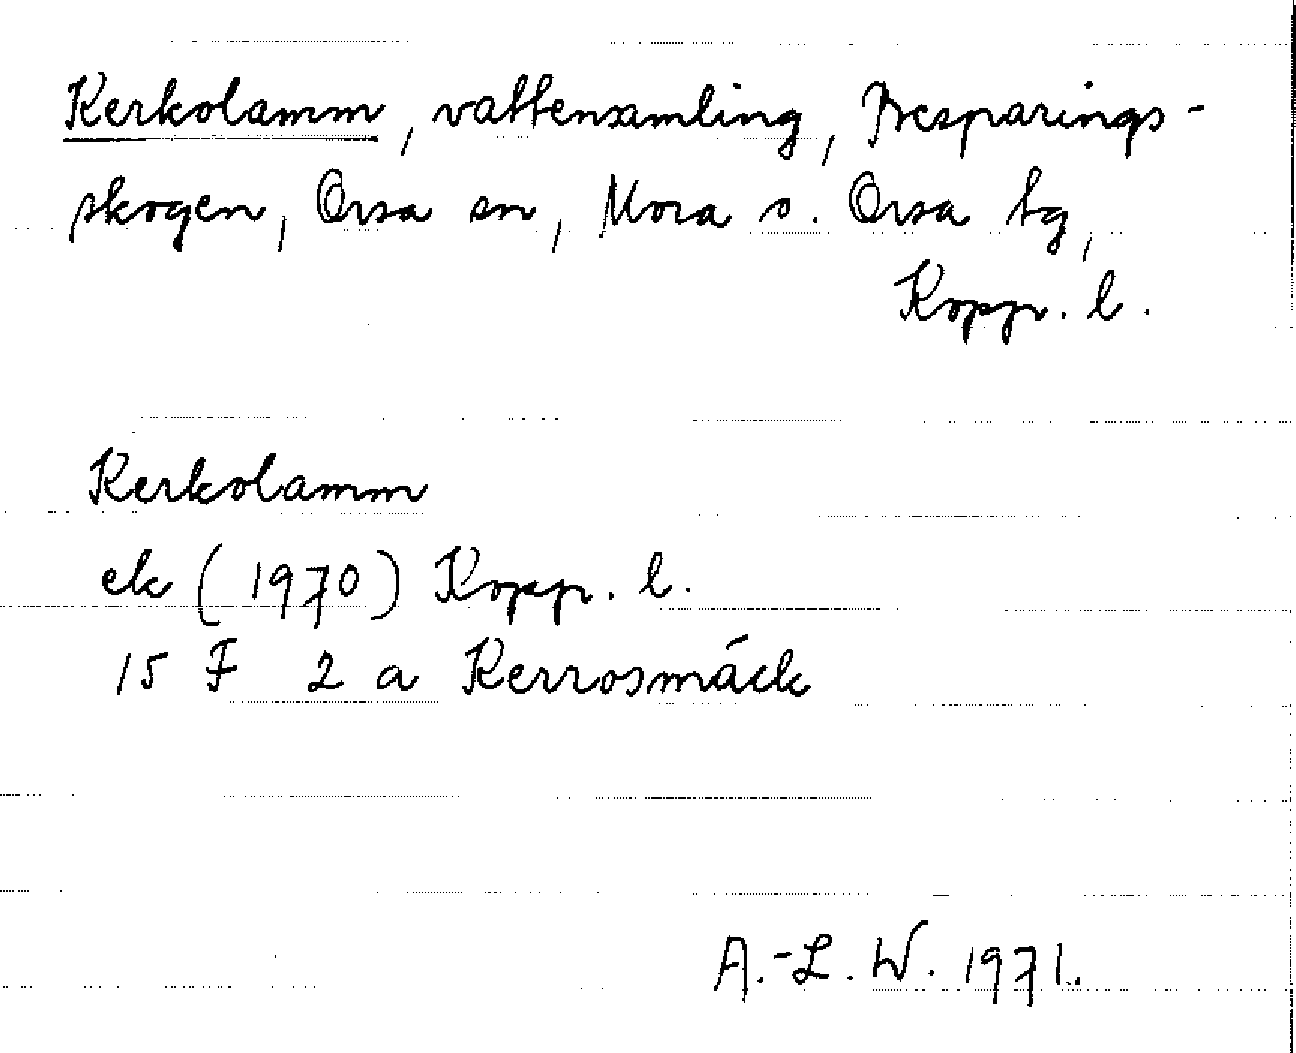 Kerkolamm, vattensamling, Besparings-
skogen, Orsa sn, Mora o. Orsa tg,
Kopp. l.
Kerkolamm
ek (1970) Kopp. l.
15 F 2 a Kerrosmäck
A.-L. W. 1971.